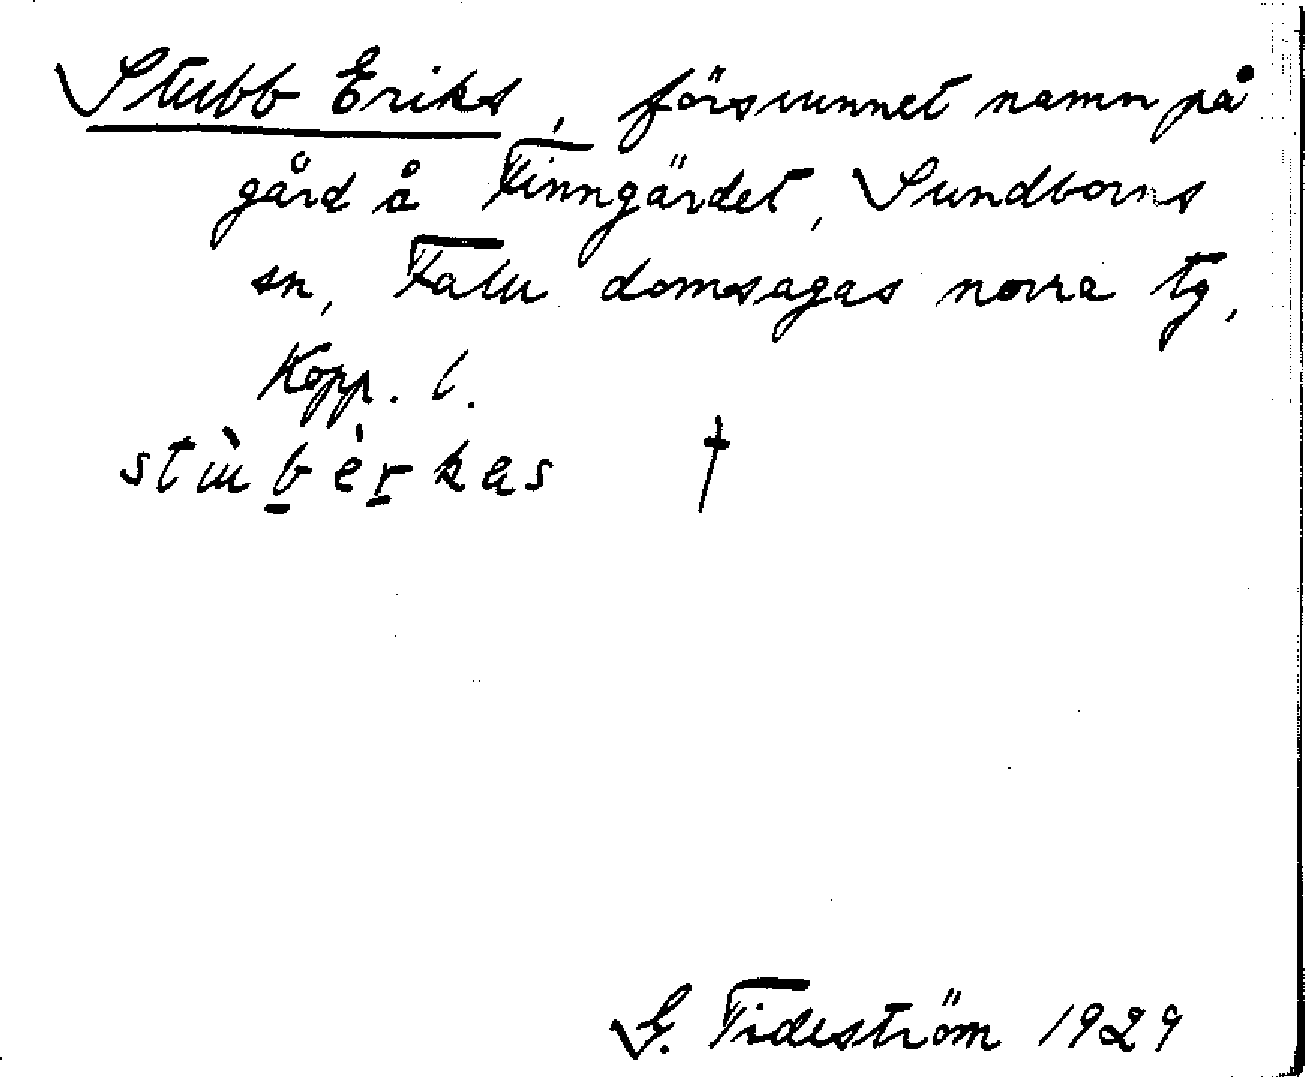 Stubb Eriks, försvunnet namn på
gård å Finngärdet, Sundborns
sn, Falu domsagas norra tg,
Kopp. l.
stùb̲èr̲kas †
G. Tideström 1929